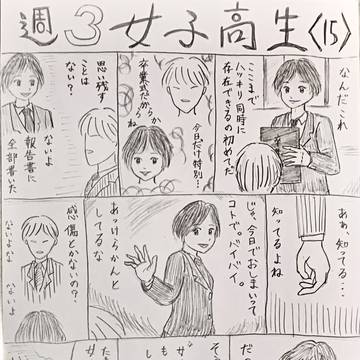 週3女子高生〈15〉
なんだこれ
ここまで
ハッキリ同時に
存在できるの初めてだ
今日だけ特別…
卒業式だから
思い残す
ことは
ない?
ないよ
報告書に
全部書いた
ああ、知ってる…
知ってるよね
じゃ、今日でおしまいって
コトで。バイバイ。
あっけらかんと
してるな
感傷とかないの?
ないよ
ないよな